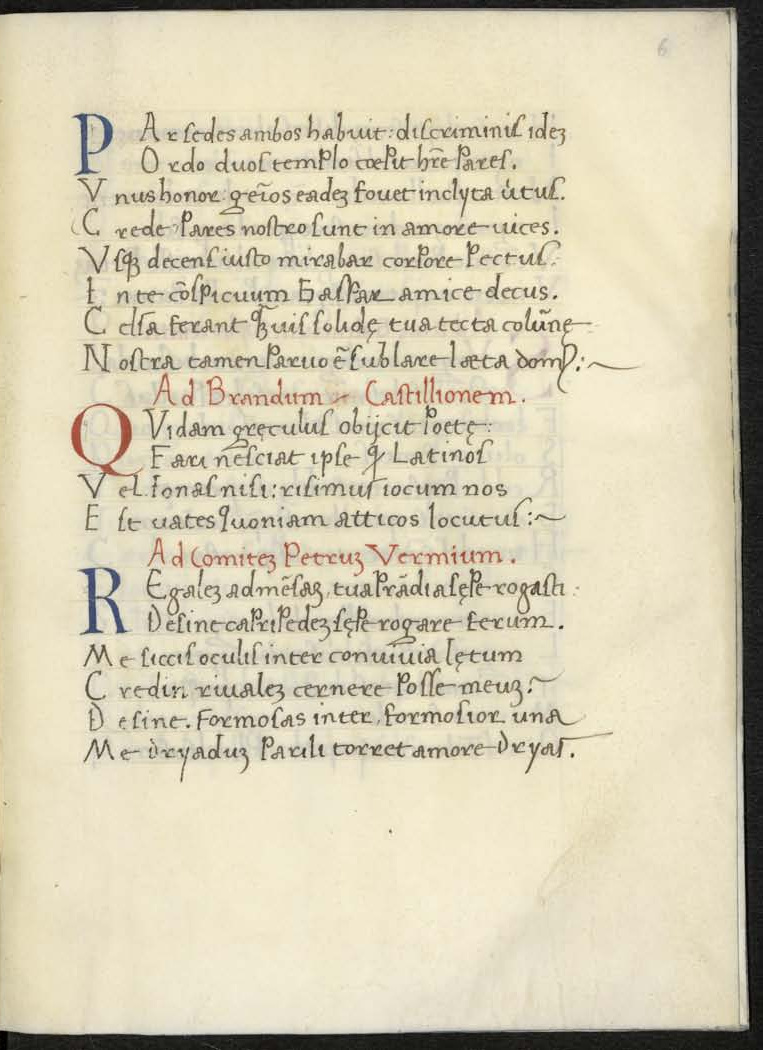 6
PAr sedes ambos habuit: discriminis ideꝫ
Ordo duos templo cœpit hr̄e pares.
Vnus honor: gēi̅os eadeꝫ fouet inclyta u̓tus.
Crede pares nostro sunt in amore uices.
Vsqꝫ decens iusto mirabar corpore pectus:
In te cōspicuum Gaspar amice decus.
Celsa ferant q̄uis solidę tua tecta colūnę
Nostra tamen paruo ē sub lare læta domꝰ:~
Ad Brandum Castillionem.
QVidam gręculus obijcit poetę:
Fari nesciat ipse ꝙ Latinos
Vel sonas nisi: risimus iocum nos
Est uates quoniam atticos locutus:~
Ad Comiteꝫ Petruꝫ Vermium.
REgaleꝫ ad mēsaꝫ, tua prādia sępe rogasti:
Desine capripedeꝫ sępe rogare ferum.
Me siccis oculis inter conuiuia lętum
Credin riualeꝫ cernere posse meuꝫ?
Desine. Formosas inter, formosior una
Me dryaduꝫ parili torret amore dryas.